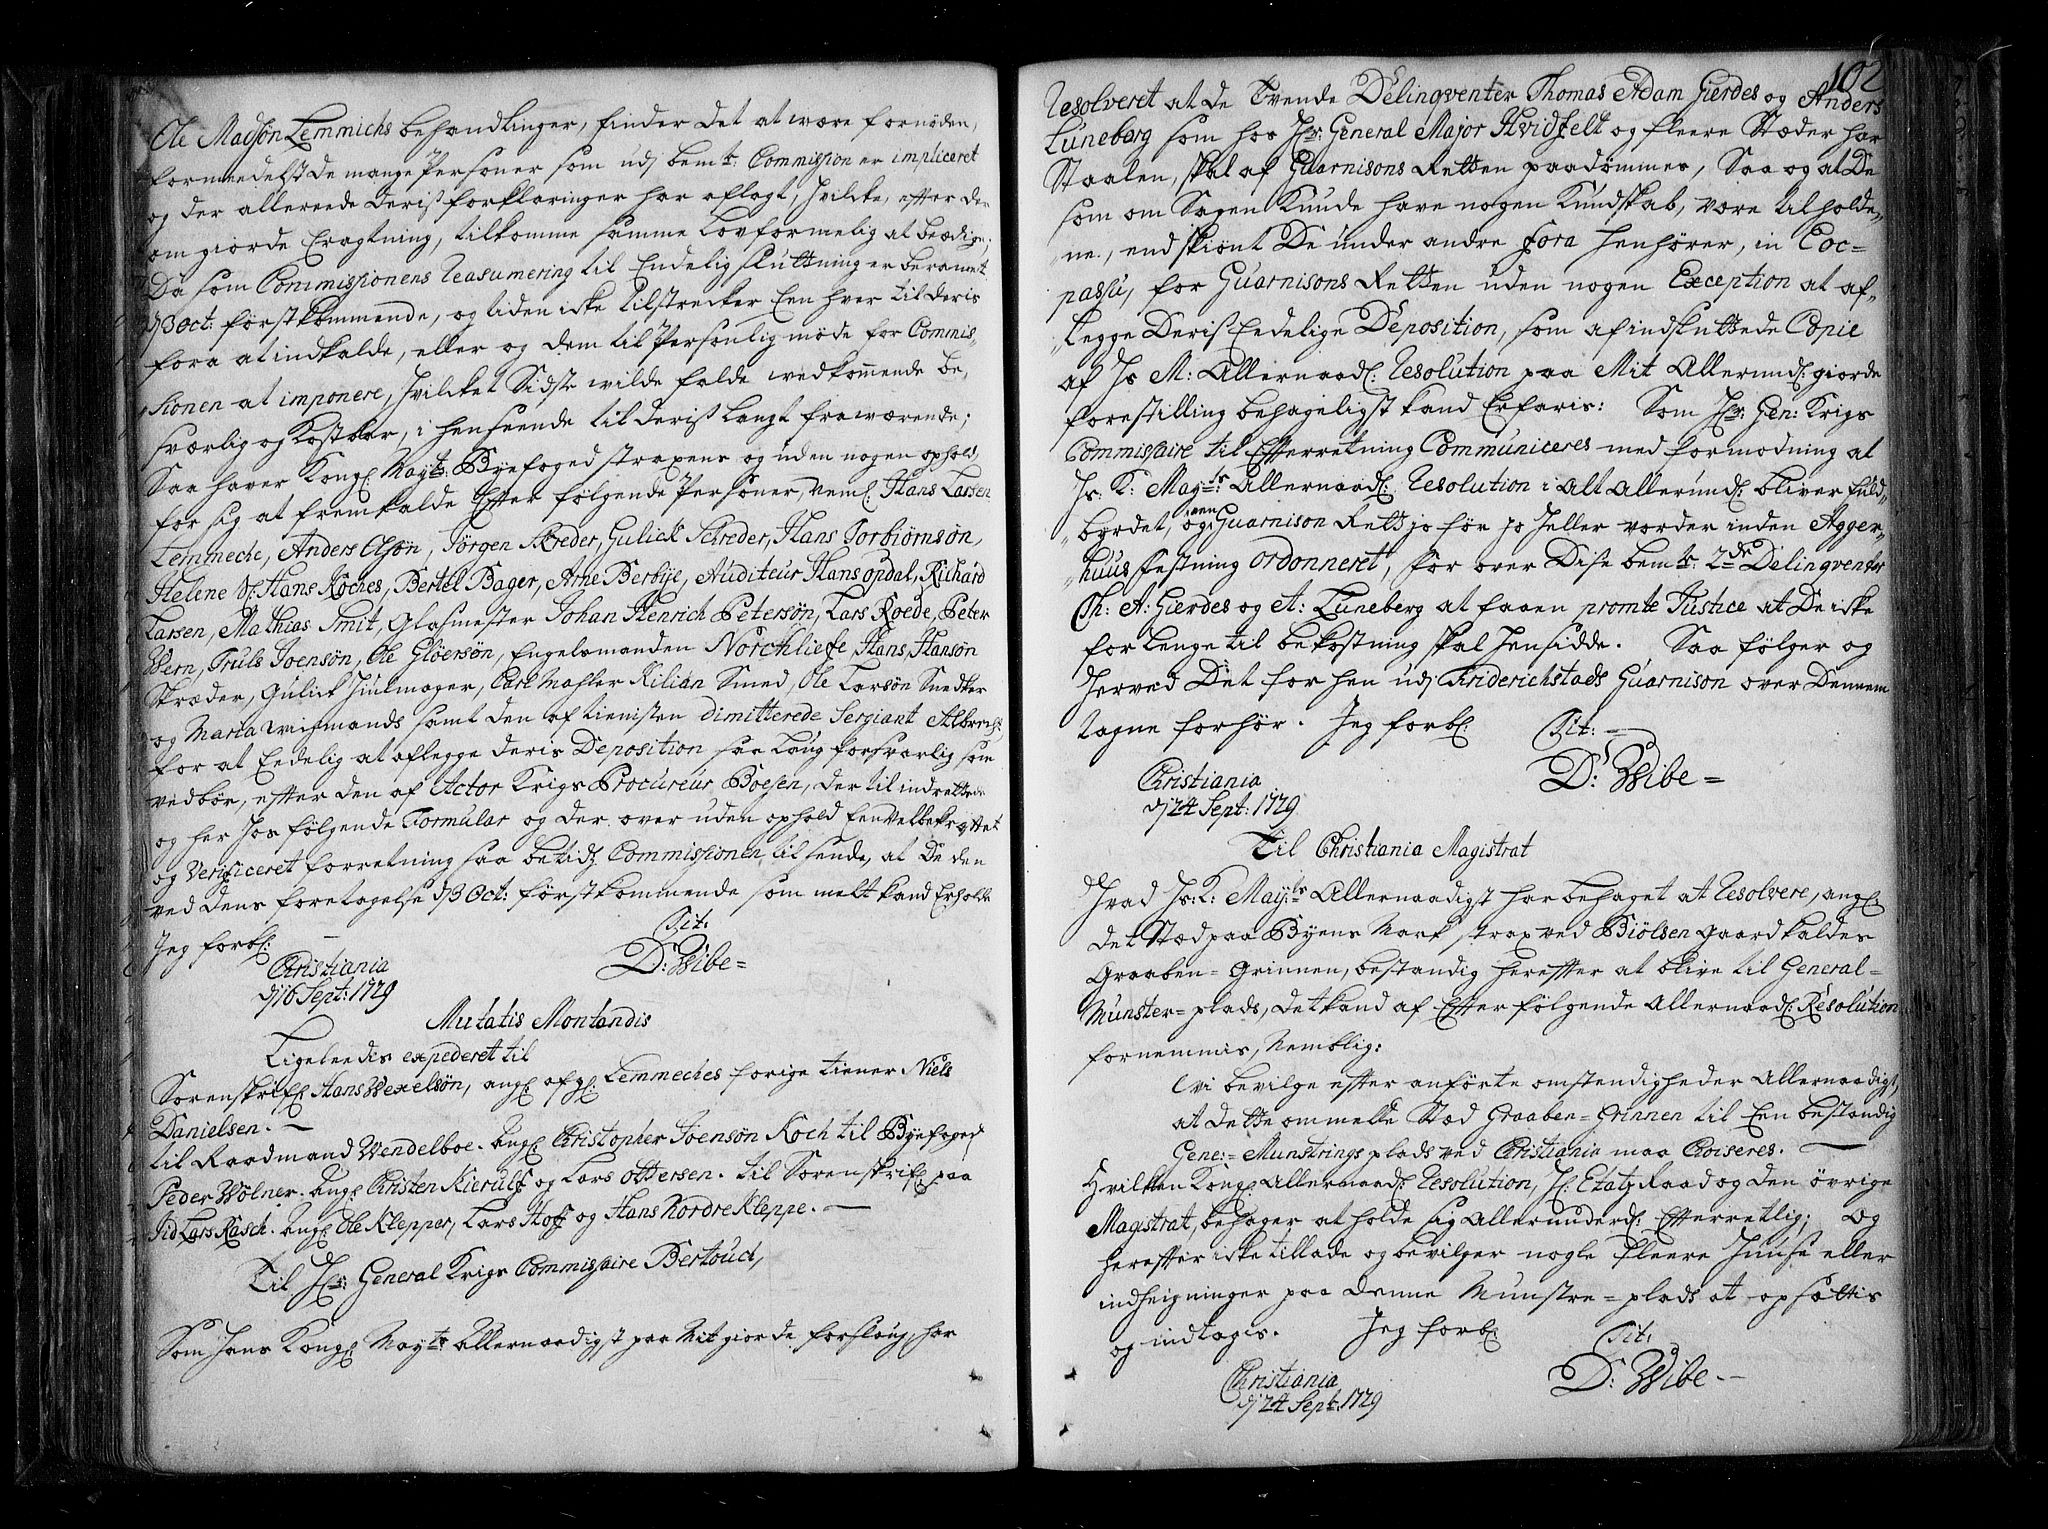 Ole Madsøn Lemmichs behandlinger, finder det at være fornøden,
formedelst de mange Personer som udj bemte: Commission er impliceret
og der allereede deris forklaringer har aflagt, hvilke, efter der
om giorde Eragtning, tilkomme samme Lovformelig at beædige;
Da som Commissionens Reasumering til Endelig sluttning er beramet
d 3 Oct: førstkommende, og tiden icke tilstrecker Een hver til deris
fora at indkalde, eller og dem til Personlig møde for Commis„
„sionen at imponere, hvilcket Sidste wilde falde vedkommende be„
sværlig og Kostbar, i henseende til deris langt fraværende;
Saa haver Kongl: Mayts: Byefoged straxens og uden nogen ophold,
for sig at fremkalde Efter følgende Personer, neml: Hans Larsen
Lemmeche, Anders Olsøn, Jørgen Skreder, Gulick Schreder, Hans Torbiørnsøn,
Helene Sl: Hans Koches, Bertel Bager, Arne Berbÿe, Auditeur Hans opdal, Richard
Larsen, Mathias Smit, Glasmester Johan Henrich Petersøn, Lars Roede, Peter
Wern, Truls Joensøn, Ole Gløersøn, Engelsmanden Norchlieffe, Hans Hansøn
Skræder, Gulick Hiulmager, Carl Mahler Kilian Smed, Ole Larsøn Snedker
og Marta wismands samt den af tienisten dimitterede Sergiant Albrecht
for at Eedelig at aflegge deris Deposition saa Laug forsvarlig som
vedbør, efter den af Actor Krigs Procureur Boesen, der til indrettede
og her hos følgende Formular og der over uden ophold Een velbekræftet
og Verificeret forretning saa betids Commissionen til sende, at De den
ved dens foretagelse d 3 Oct: førstkommende som melt kand Erholde
Jeg forbl: Tit:
Christiania D: Wibe=
d 16 Sept: 1729
Mutatis Montandis
Ligeleedis expederet til
Sorenskrifr: Hans Wexelsøn, angl: afgl: Lemmeches forige tiener Niels
Danielsen. —
til Raadmand Wendelboe. Angl: Christopher Joensøn Koch til Byefoged
Peder Wølner. Angl: Christen Kierulf og Lars ottersen. til Sorenskrifr: paa
Lars Rasch. Angl: Ole Klepper, Lars Hoff og Hans Nordre Kleppe. —
Til Hr: General Krigs Commissaire Bertouch,
Som Hans Kongl: Mayts: Allernaadigst paa Mit giorde forslaug, har
102
Resolveret at de Tvende Delinqventer Thomas Adam Gierdes og Anders
Luneberg som hos Hr: General Major Hvidfelt og fleere Stæder har
Staalen, skal af Guarnisons Retten paadømmes, Saa og at De
som om Sagen Kunde have nogen Kundskab, vore tilholde„
„ne, endskiønt De under andre fora henhører, in Eoc=
passu, for Guarnisons Retten uden nogen Exception at af„
„legge Deris Eedelige Deposition, som af indsluttede Copie
af Hs M: Allernaadl: Resolution paa Mit Allerundl: giorde
forestilling behageligst kand Erfaris: Som Hr: Gen: Krigs
Commissaire til Efterretning Communiceres med formodning at
Hs: K: Mayts: Allernaadl: Resolution i Alt Allerundl: bliver fuld„
„byrdet, og en Guarnison Rett jo før jo heller vorder inden Agger„
„huus festning ordonneret, for over Dise bemte: 2de Delinqventer
Th: A: Gierdes og A: Luneberg at faaen promte Justice at De icke
for lenge til bekostning skal hensidde. Saa følger og
herved Det for hen udj Friderichstads Guarnison over Dennem
tagne forhør. Jeg forbl: Tit: —
Christiania D: Wibe=
d 24 Sept: 1729
Til Christiania Magistrat
Hvad Hs: K: Mayts Allernaadigst har behaget at Resolvere, angl:
det Stæd paa Byens Mark strax ved Biølsen gaard kaldes
Graaben=Grinnen, bestandig herefter at blive til General=
Munster=plads, det kand af Efter følgende Allernaadl: Resolution
fornemmis, Nemblig:
Vi bevilge efter anførte omstendigheder Allernaadigst,
at dette ommelte Stæd Graaben=Grinnen til Een bestandig
Gene:=Munstrings plads ved Christiania maa Choiseres. —
Hvilken Kongl: Allernaadl: Resolution, Hr: Etatz Raad og den øvrige
Magistrat, behager at holde sig Allerunderdl: Efterretlig; Og
herefter icke tillade og bevilger nogle fleere Huuse eller
indheigninger paa denne Munstre=plads at opsættis
og indtages. Jeg forbl: Tit:
Christiania D: Wibe. —
d 24 Sept: 1729